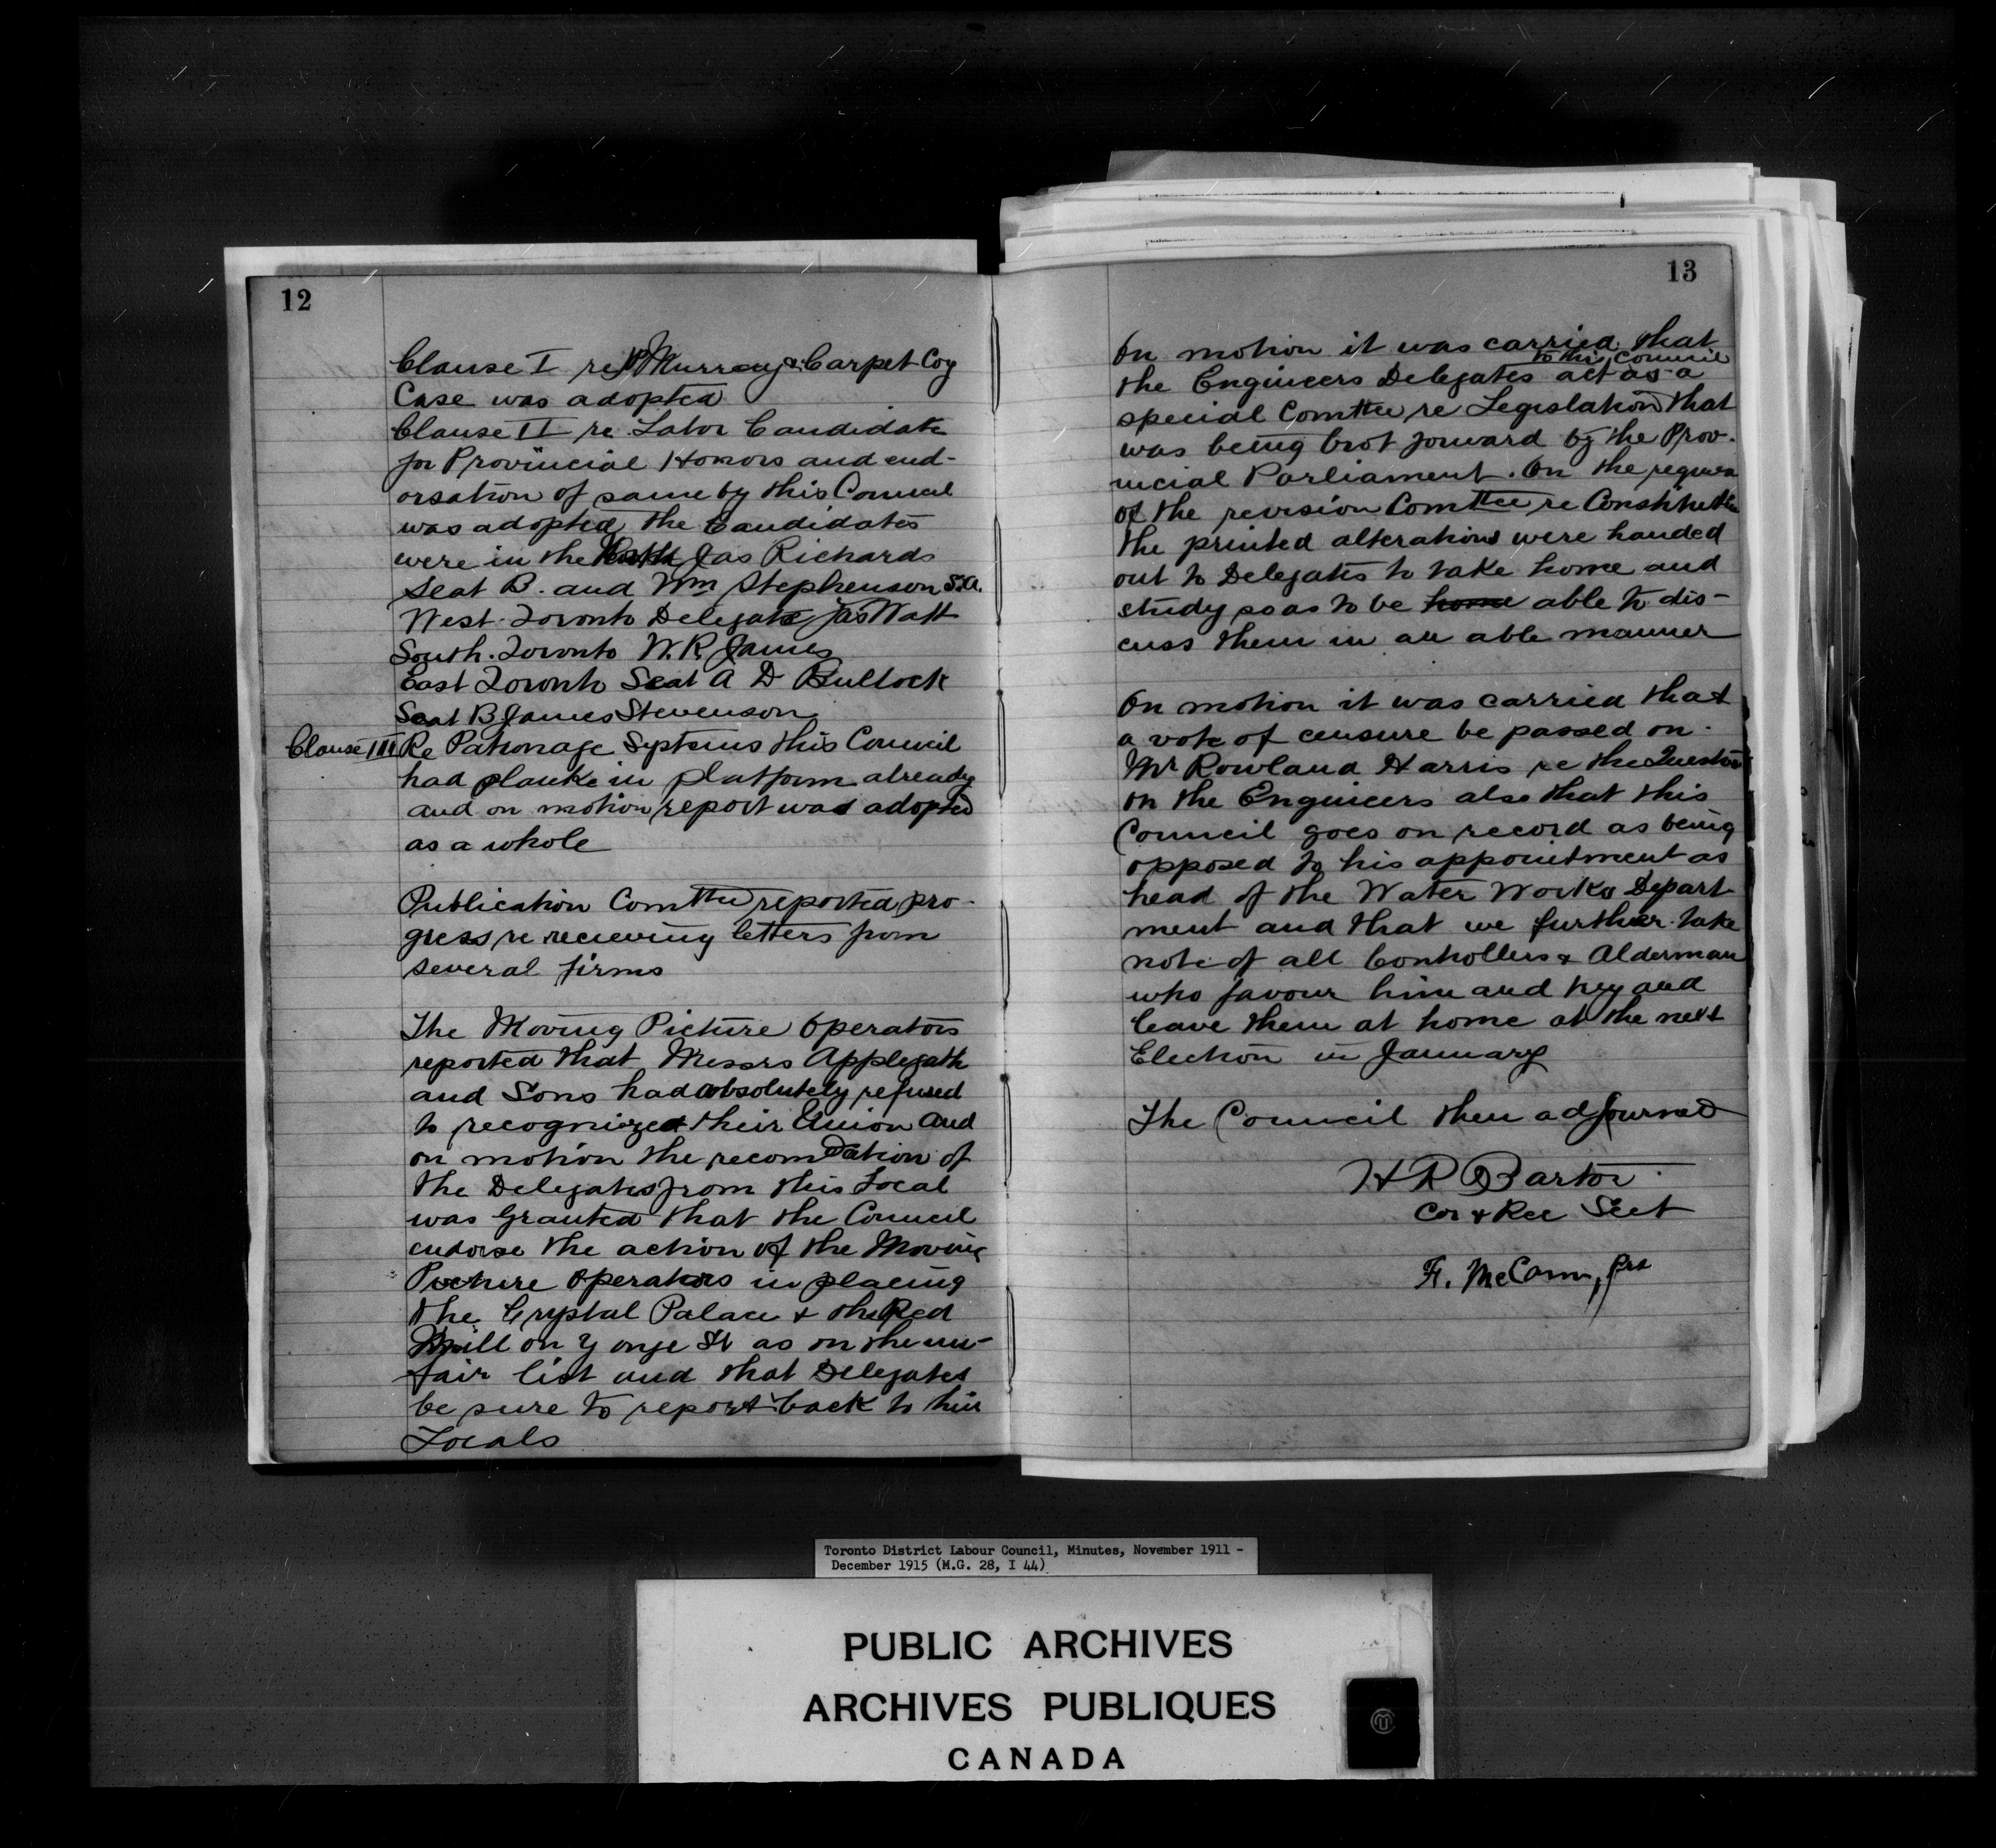 12
Clause I re Murray & Carpet Coy
Case was adopted
Clause II re Labor Candidate
for Provincial Honors and end-
orsation of same by this Council
was adopted the Candidates
were in the Jas Richards
Seat B. and Wm Stephenson S.A.
West. Toronto Delegate Jas Watt
South. Toronto W. R. James
East Toronto Seat A D Bullock
Seat B James Stevenson
Clause III Re Patronage Systems this Council
had planke in platform already
and on motion report was adopted
as a whole
Publication Comttee reported pro-
gress re recieving letters from
several firms
The Moving Picture Operators
reported that Messrs Applegath
and Sons had absolutely refused
to recognized their Union and
on motion the recomdation of
the Delegates from this Local
was Granted that the Council
endorse the action of the Moving
Picture Operators in placing
the Crystal Palace & the Red
Mill on Yonge St as on the un-
fair list and that Delegates
be sure to report back to their
Locals
13
On motion it was carried that
to this Council
the Engineers Delegates act as a
special Comttee re Legislation that
was being brot forward by the Prov-
incial Parliament. On the request
of the revision Comttee re Constitution
the printed alterations were handed
out to Delegates to take home and
study so as to be home able to dis-
cuss them in an able manner
On motion it was carried that
a vote of censure be passed on
Mr Rowland Harris re the Question
on the Engineers also that this
Council goes on record as being
opposed to his appointment as
head of the Water Works Depart-
ment and that we further take
note of all Controllers & Alderman
who favour him and try and
leave them at home at the next
Election in January
The Council then adjourned
H R Barton
Cor & Rec Sect
F. McCann, Prs
Toronto District Labour Council, Minutes, November 1911 -
December 1915 (M.G. 28, I 44)
PUBLIC ARCHIVES
ARCHIVES PUBLIQUES
CANADA